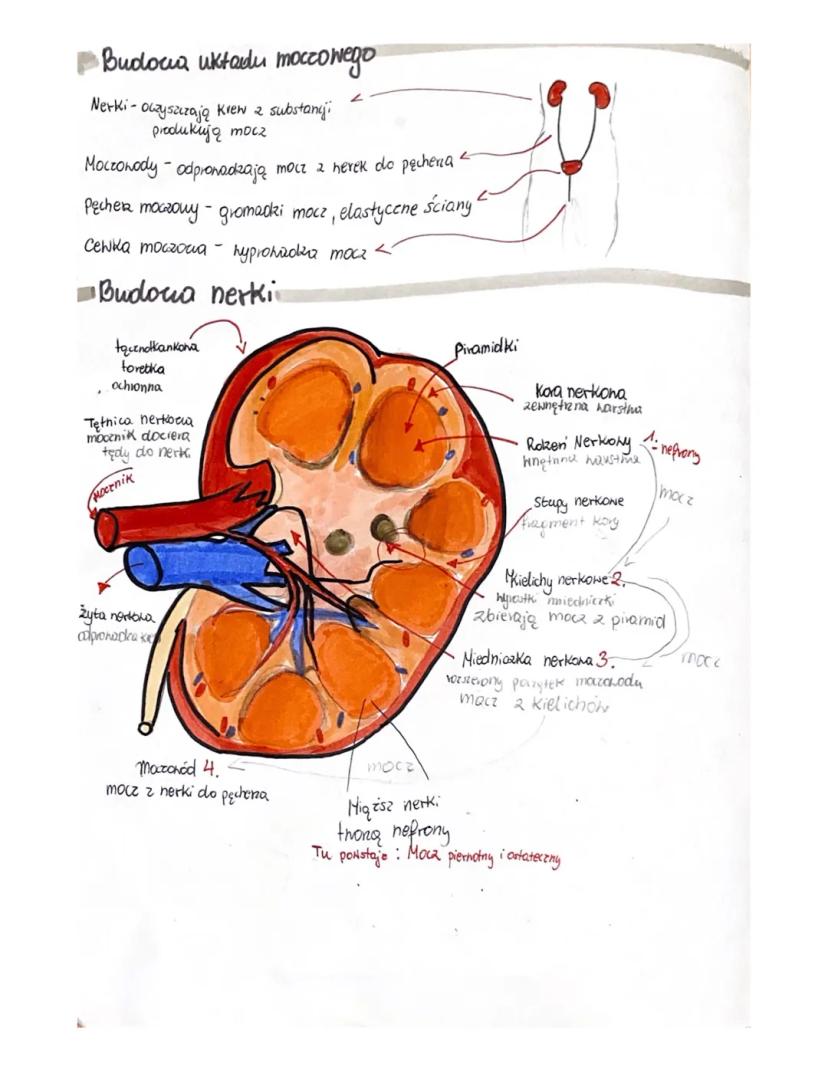 Budowa układu moczowego
Nerki - oczyszczają krew z substancji
produkują mocz
Moczowody - odprowadzają mocz z nerek do pęcherza
Pęcherz moczowy - gromadzi mocz, elastyczne ściany
Cewka moczowa - wyprowadza mocz
Budowa nerki
łącznotkankowa
torebka
ochronna
Tętnica nerkowa
mocznik dociera
tędy do nerki
mocznik
Żyła nerkowa
odprowadza krew
piramidki
Kora nerkowa
zewnętrzna warstwa
Rdzeń Nerkowy 1. nefrony
wnętrzna warstwa
mocz
Słupy nerkowe
fragment kory
Kielichy nerkowe 2.
wypustki miedniczki
zbierają mocz z piramid
Miedniczka nerkowa 3.
mocz
rozszerzony początek moczowodu
mocz z kielichów
Moczowód 4.
mocz z nerki do pęcherza
mocz
Miąższ nerki
tworzą nefrony
Tu powstaje : Mocz pierwotny i ostateczny